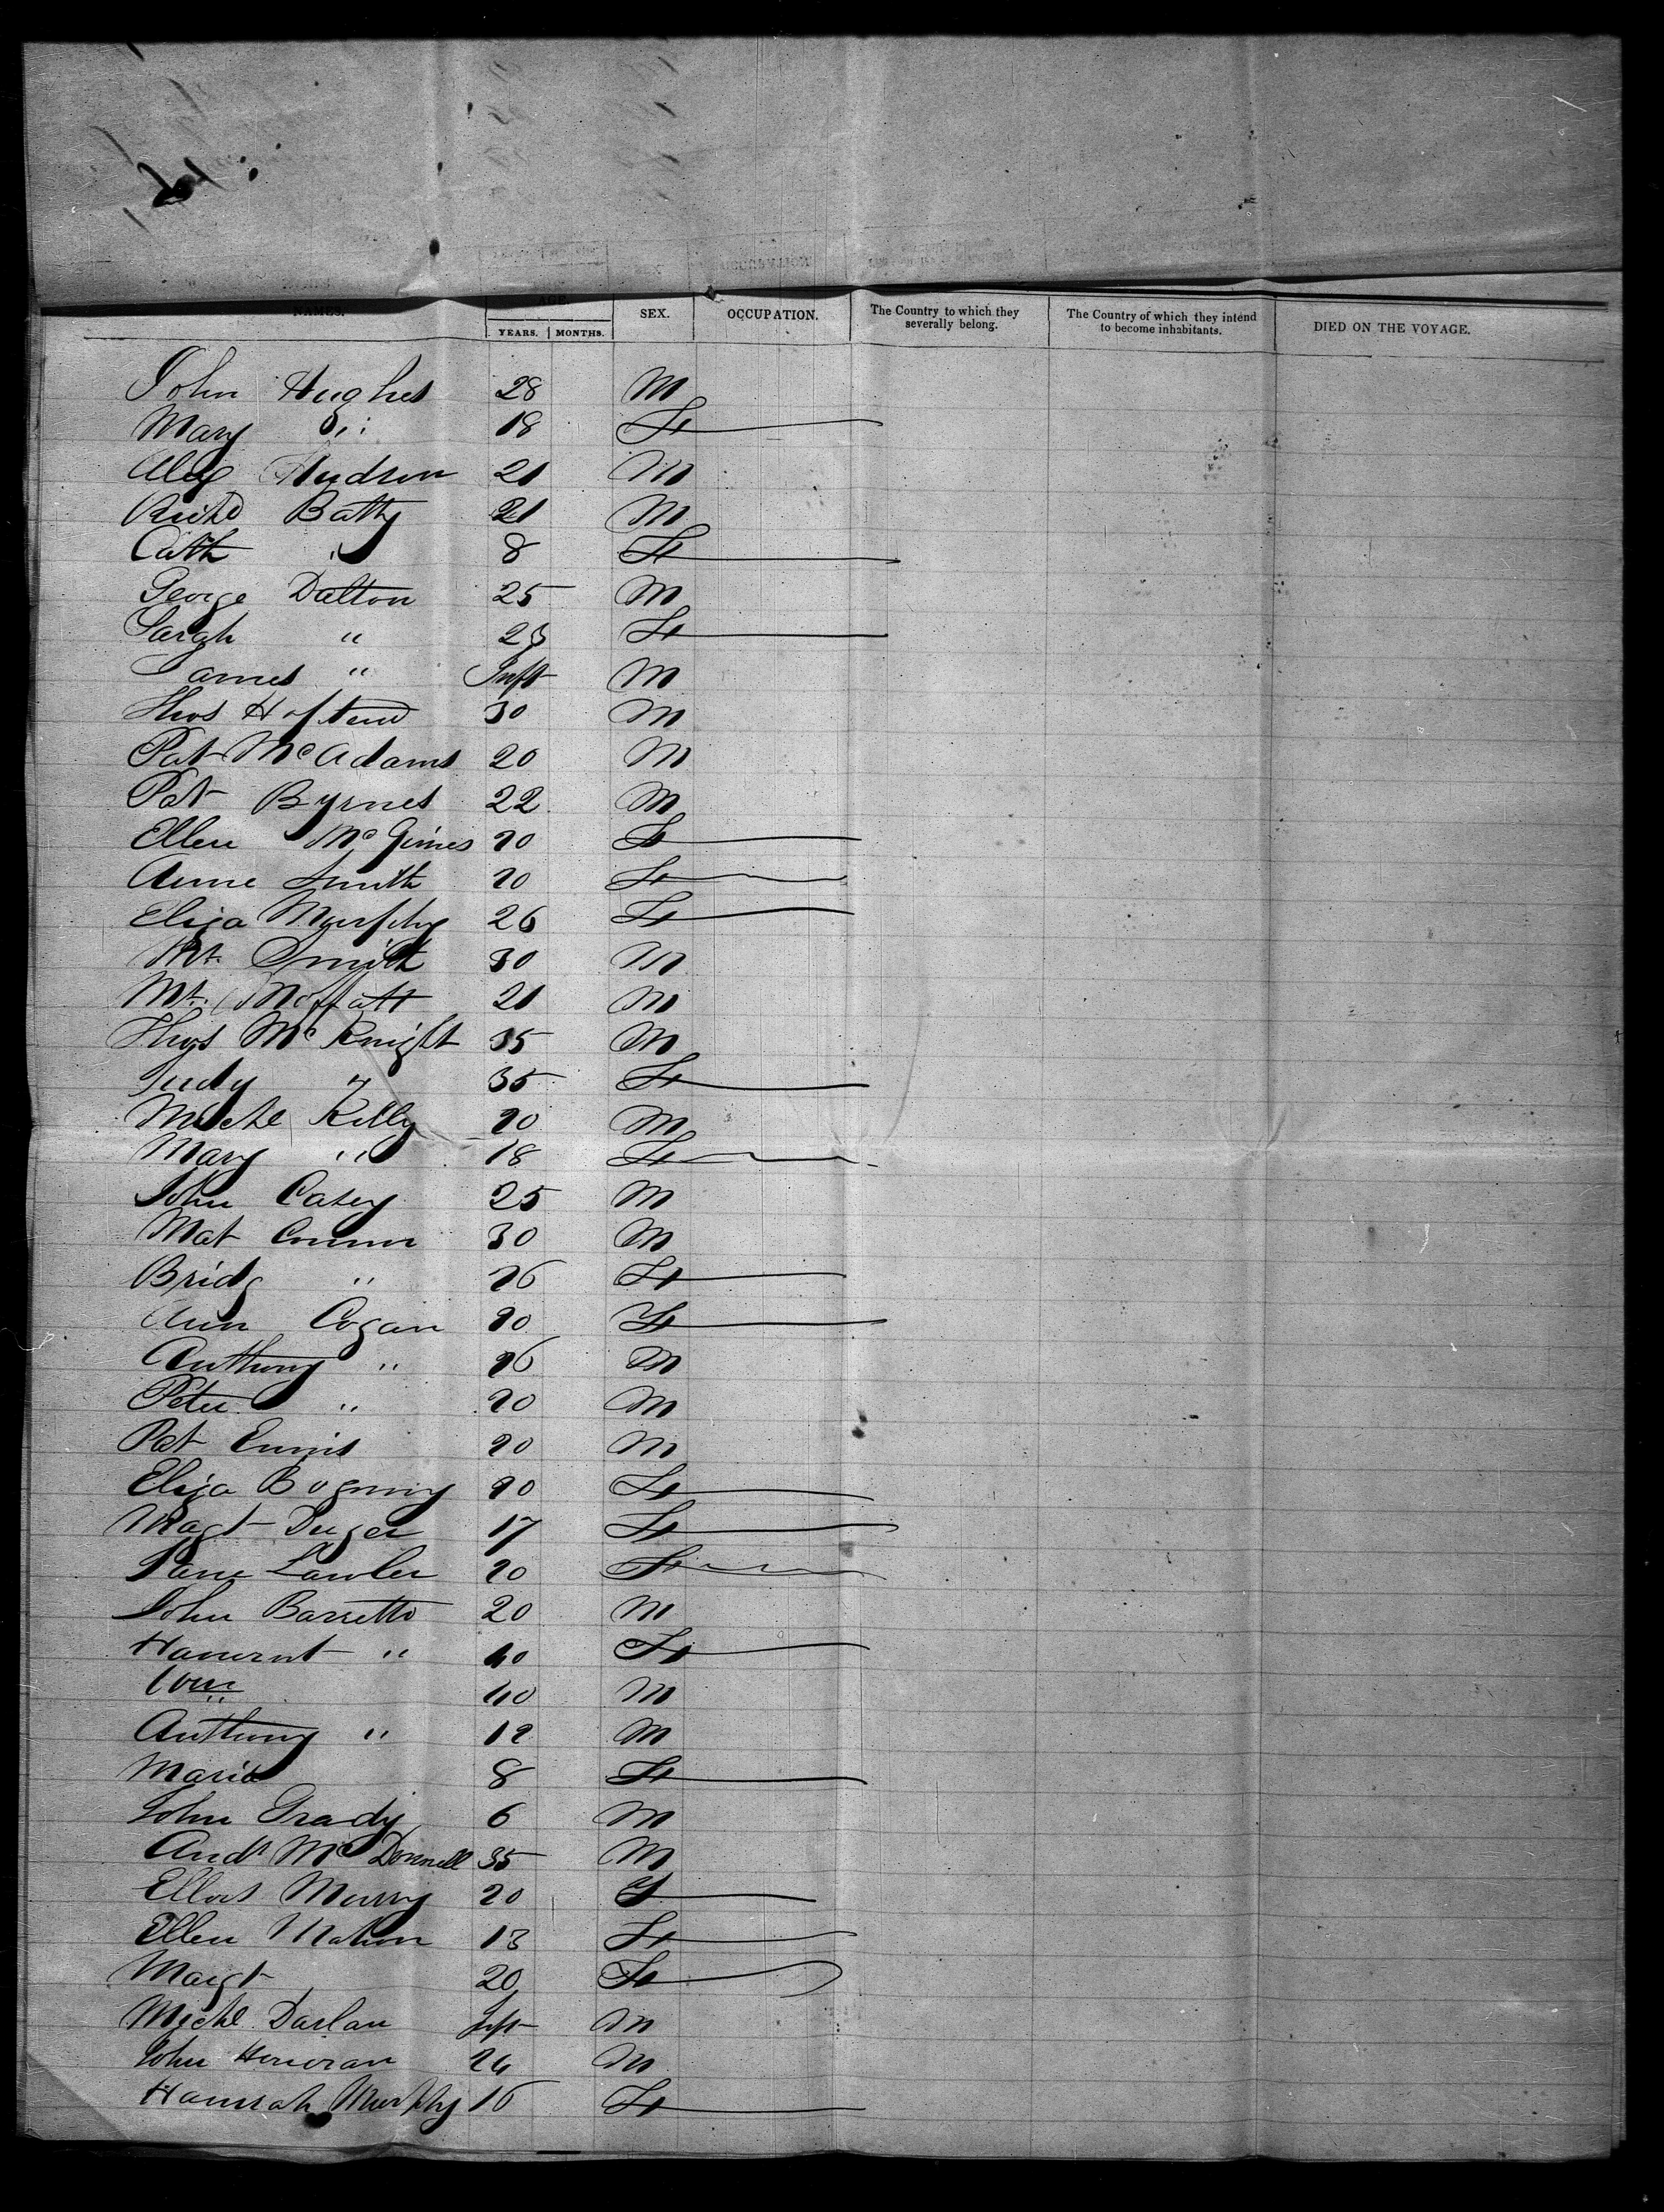 NAMES. AGE. SEX. OCCUPATION. The Country to which they severally belong. The Country of which they intend to become inhabitants. DIED ON THE VOYAGE.
YEARS. MONTHS.
John Hughes 28 M
Mary Do 18 F
Alex Hudson 21 M
Richd Batty 21 M
Cath " 8 F
George Dalton 25 M
Sargh " 25 F
James " Inft M
Thos 30 M
Pat McAdams 20 M
Pat Byrnes 22 M
Ellen McGinnes 20 F
Anne Smith 20 F
Eliza Murphy 26 F
Mt. Smith 30 M
Mt. Moffatt 21 M
Thos McKnight 35 M
Judy " 35 F
Michl Kelly 20 M
Mary " 18 F
John Casey 25 M
Mat Connor 30 M
Bridg " 26 F
Ann Cogan 20 F
Anthony " 26 M
Peter " 20 M
Pat Ennis 20 M
Eliza 20 F
Magt Duger 17 F
Jane Lawler 20 F
John Barrette 20 M
" 40 F
Wm " 40 M
Anthony " 12 M
Maria 8 F
John Grady 6 M
Andw McDonnell 35 M
Murry 20 F
Ellen Mahon 13 F
Margt 20 F
Michl Darlan Inft M
John Honoran 24 M
Hannah Murphy 16 F